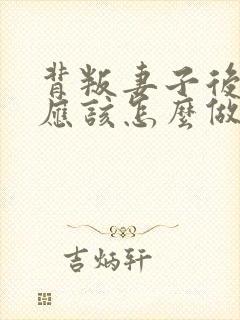 背叛妻子後
應該怎麼做
吉炳轩